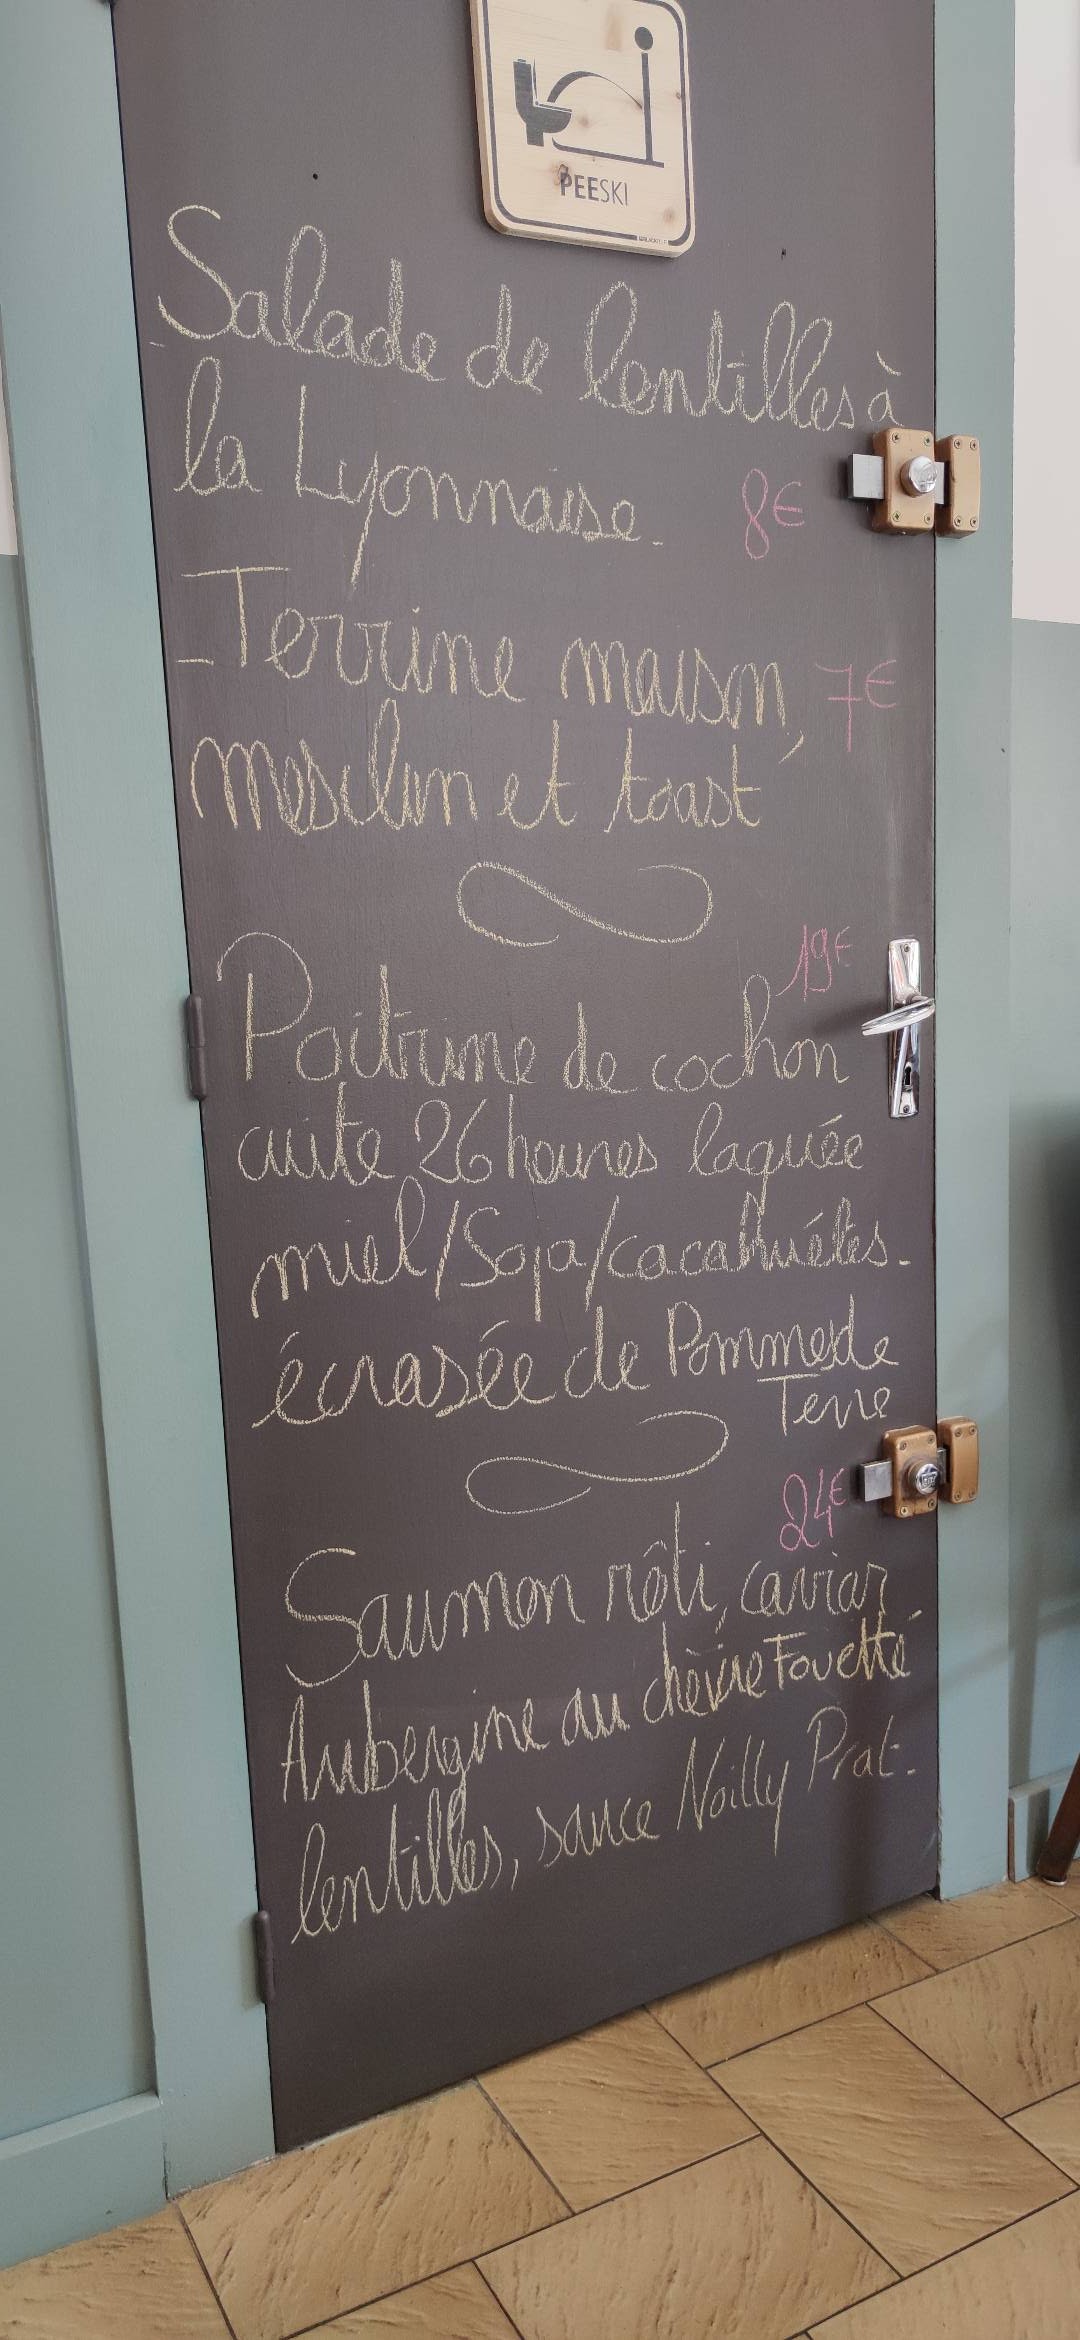 PEESKI
- Salade de lentilles à
la Lyonnaise - 8€
- Terrine maison, 7€
mesclun et toast
19€
Poitrine de cochon
cuite 26 heures laquée
miel/Soja/cacahuètes -
écrasée de Pomme de
Terre
24€
Saumon rôti, caviar
Aubergine au chèvre Fouetté
lentilles, sauce Noilly Prat -